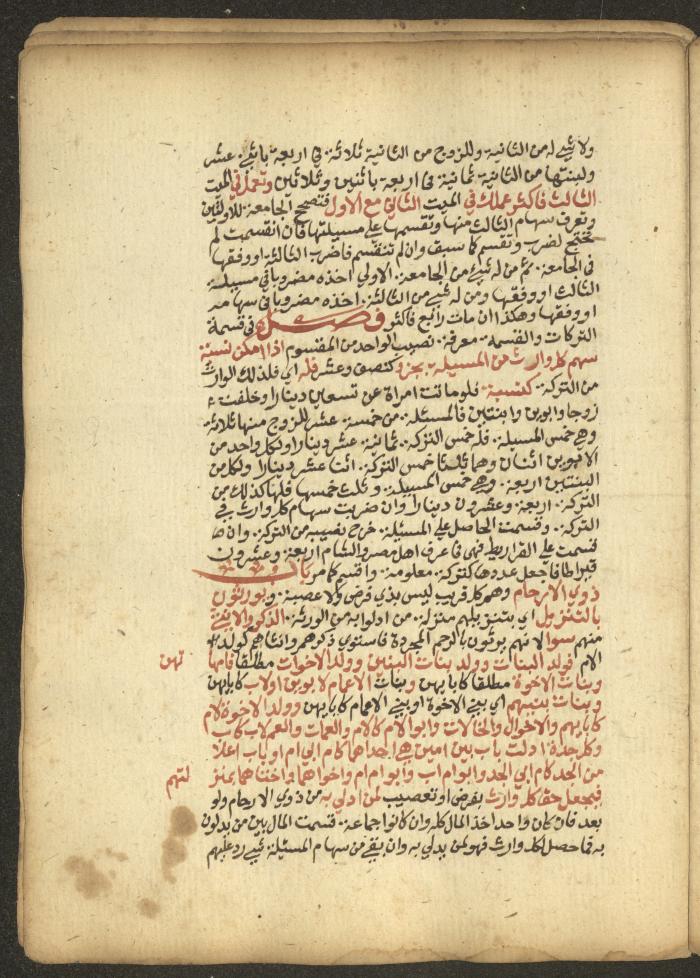 ولا شيء له من الثانية وللزوج من الثانية ثلاثة في اربعة باثني عشر
ولبنتها من الثانية ثمانية في اربعة باثنين وثلاثين وتعمل في الميت
الثالث فاكثر عملك في الميت الثاني مع الاول فتصحح الجامعة للاولتين
وتعرف سهام الثالث منها وتقسمها على مسيلتها فان انقسمت لم
تحتج لضرب وتقسم كما سبق وان لم تنقسم فاضرب الثالثة او وفقها
في الجامعة ثم من له شيء من الجامعة الاولى اخذه مضروبا في مسيلة
الثالث او وفقها ومن له شيء من الثالثة اخذه مضروبا في سهامه
او وفقها وهكذا ان مات رابع فاكثر فصل في قسمة
التركات والقسمة معرفة نصيب الواحد من المقسوم اذا امكن نسبة
سهم كل وارث من المسيلة بجزو كنصف وعشر فله اي فلذلك الوارث
من التركة كنسبته فلو ماتت امراة عن تسعين دينارا وخلفت
زوجا وابوين وابنتين فالمسئلة من خمسة عشر للزوج منها ثلاثة
وهي خمس المسيلة فله خمس التركة ثمانية عشر دينارا ولكل واحد من
الابوين اثنان وهما ثلثا خمس التركة اثنا عشر دينارا ولكل من
البنتين اربعة وهي خمس المسيلة وثلث خمسها فلها كذلك من
التركة اربعة وعشرون دينارا وان ضربت سهام كل وارث في
التركة وقسمت الحاصل على المسئلة خرج نصيبه من التركة وان
قسمت على القراريط فهي في عرف اهل مصر والشام اربعة وعشرون
قيراطا فاجعل عددها كتركة معلومة واقسم كما مر باب
ذوي الارحام وهم كل قريب ليس بذي فرض ولا عصبة ويورثون
بالتنزيل اي بتنزيلهم منزلة من ادلوا به من الورثة الذكر والانثى
منهم سوا لانهم يرثون بالرحم المجردة فاستوى ذكرهم وانثاهم كولد
الام فولد البنات وولد بنات البنين وولد الاخوات مطلقا كامها تهن
وبنات الاخوة مطلقا كابايهن وبنات الاعمام لابوين او لاب كابايهن
وبنات بنيهم اي بني الاخوة او بني الاعمام كابايهن وولد الاخوة لام
كابايهم والاخوال والخالات وابو الام كالام والعمات والعم لام كاب
وكل جدة ادلت باب بين امين هي احداهما كام ابي ام او باب اعلا
من الجد كام ابي الجد وابو ام اب وابو ام ام واخواهما واختاهما بمنز لتهم
فيجعل حق كل وارث بفرض او تعصيب لمن ادلى به من ذوي الارحام ولو
بعد فان كان واحد اخذ المال كله وان كانوا جماعة قسمت المال بين من يدلون
به فما حصل لكل وارث فهو لمن يدلي به وان بقي من سهام المسئلة شيء رد عليهم